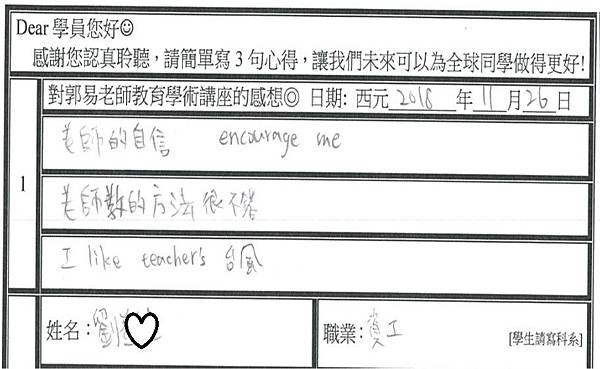 Dear 學員您好☺
感謝您認真聆聽，請簡單寫 3 句心得，讓我們未來可以為全球同學做得更好!
對郭易老師教育學術講座的感想◎ 日期: 西元 2018 年 11 月 26 日
老師的自信 encourage me
1
老師教的方法很不錯
I like teacher's 台風
姓名：劉
職業：資工 [學生請寫科系]